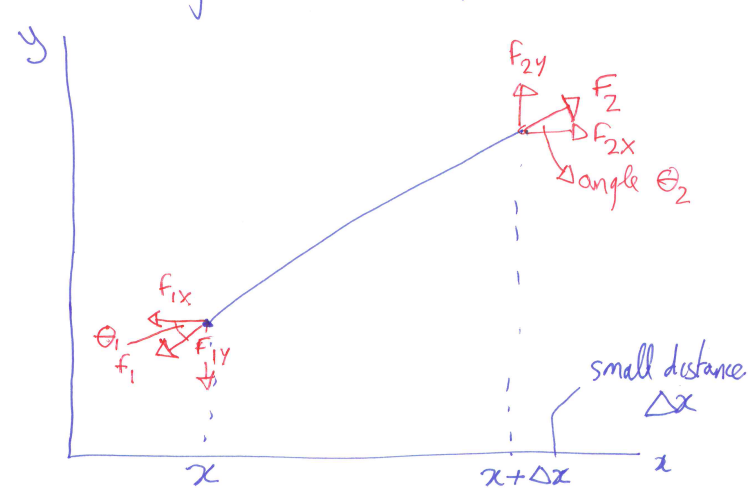 y
F2Y
F2
F2X
angle θ2
F1X
θ1
f1
F1Y
small distance
Δx
x
x+Δx
x